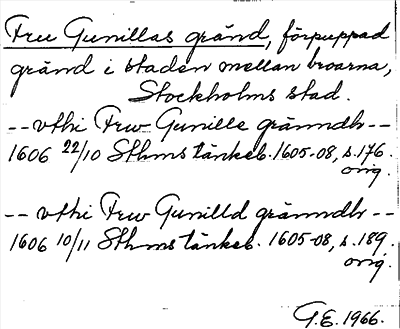 Fru Gunillas gränd, förpuppad
gränd i staden mellan broarna,
Stockholms stad.
-- vthi Frw Gunille gränndh --
1606 22/10 Sthms tänkeb. 1605-08, s. 176.
orig.
-- vthi Frw Gunilld gränndh --
1606 10/11 Sthms tänkeb. 1605-08, s. 189.
orig.
G.E. 1966.